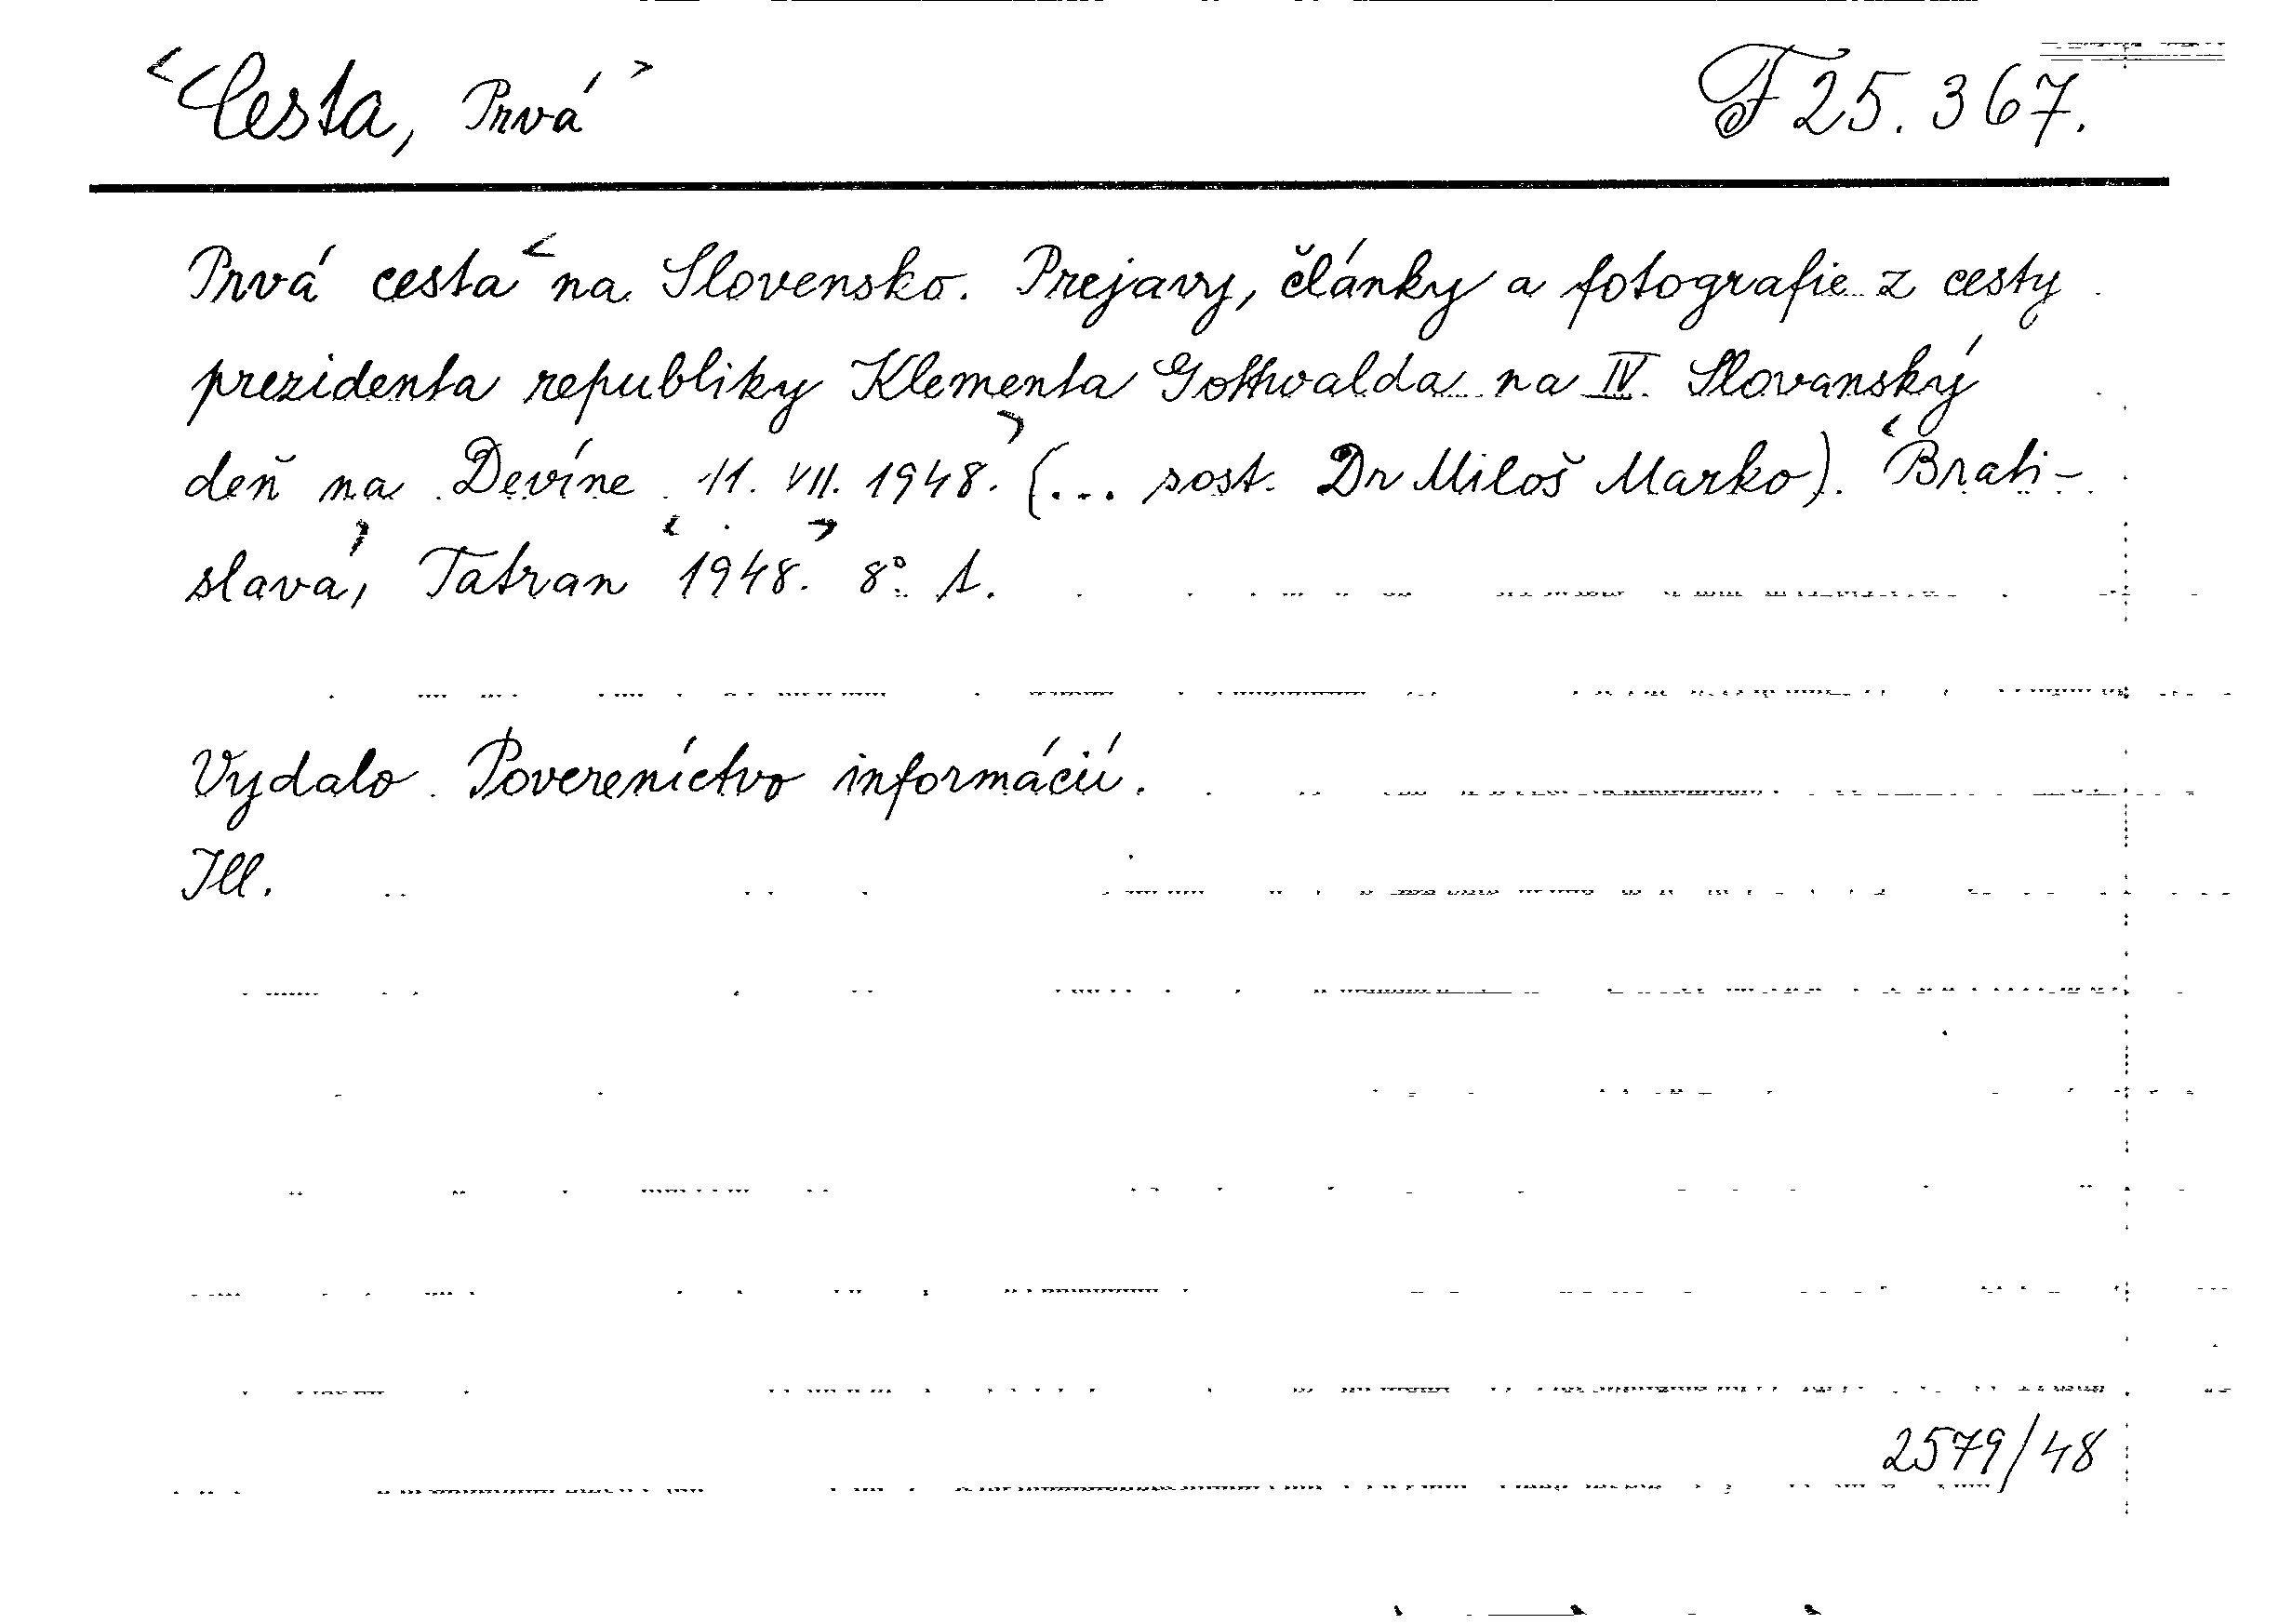 <Cesta, Prvá> F 25.367.
Prvá cesta < na Slovensko. Prejavy, články a fotografie z cesty
prezidenta republiky Klementa Gottwalda na IV. Slovanský
deň na Devíne 11. VII. 1948.> (... sost. Dr Miloš Marko). <Brati-
slava>, Tatran <1948.> 8° 1.
Vydalo Povereníctvo informácií.
Ill.
2579/48